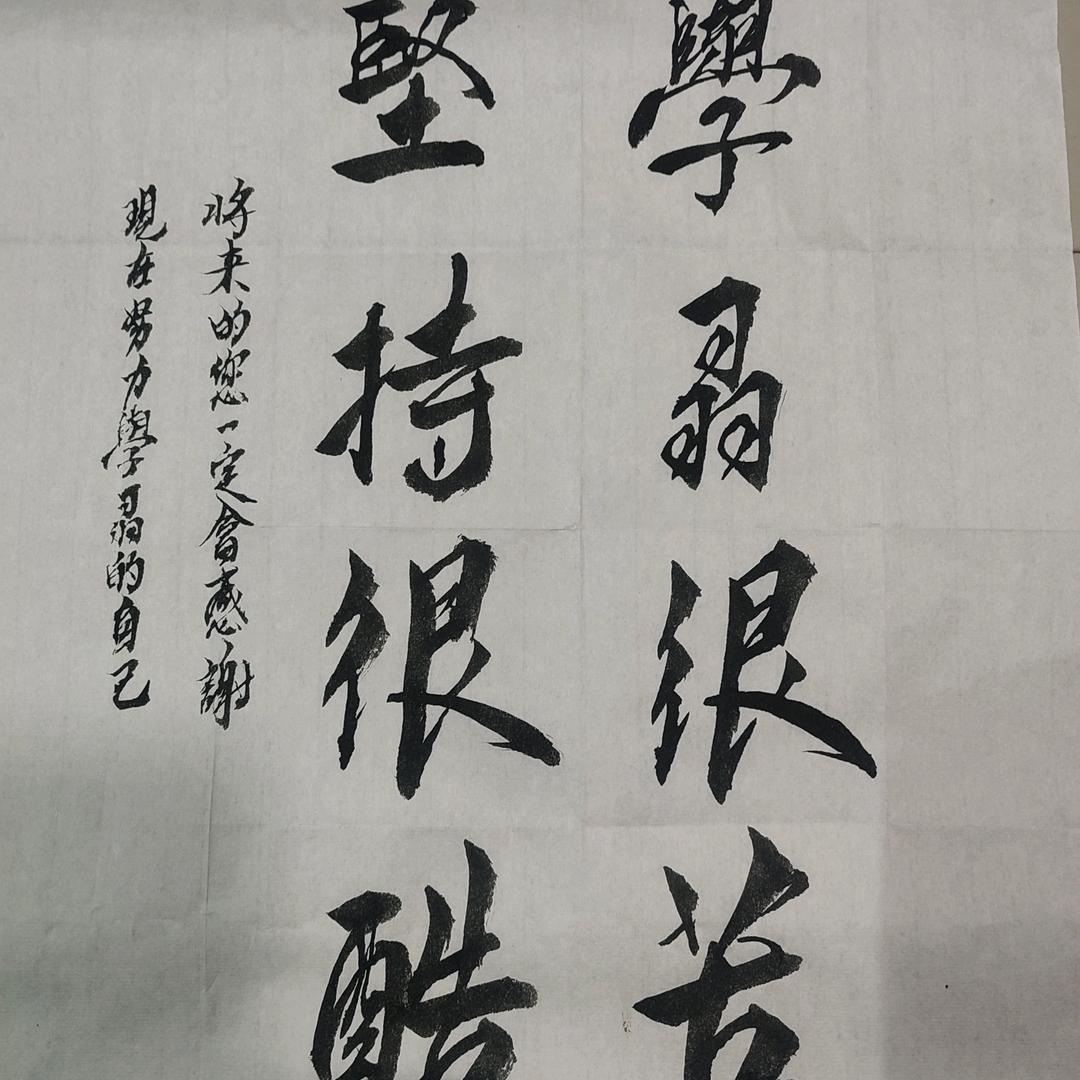 學習很苦
堅持很酷
将来的您一定會感謝
現在努力學習的自己